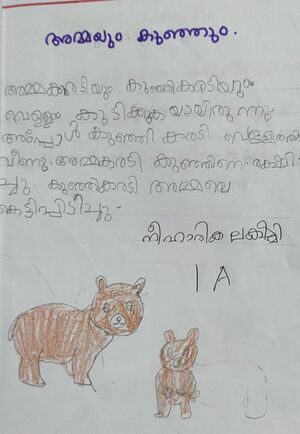 അമ്മയും കുഞ്ഞും.
അമ്മക്കരടിയും കുഞ്ഞികരടിയും
വെള്ളം കുടിക്കുകയായിരുന്നു.
അപ്പോൾ കുഞ്ഞി കരടി വെള്ളത്തിൽ
വീണു. അമ്മകരടി കുഞ്ഞിനെ രക്ഷി-
ച്ചു. കുഞ്ഞികരടി അമ്മയെ
കെട്ടിപ്പിടിച്ചു.
നീഹാരിക ലക്ഷ്മി
I A